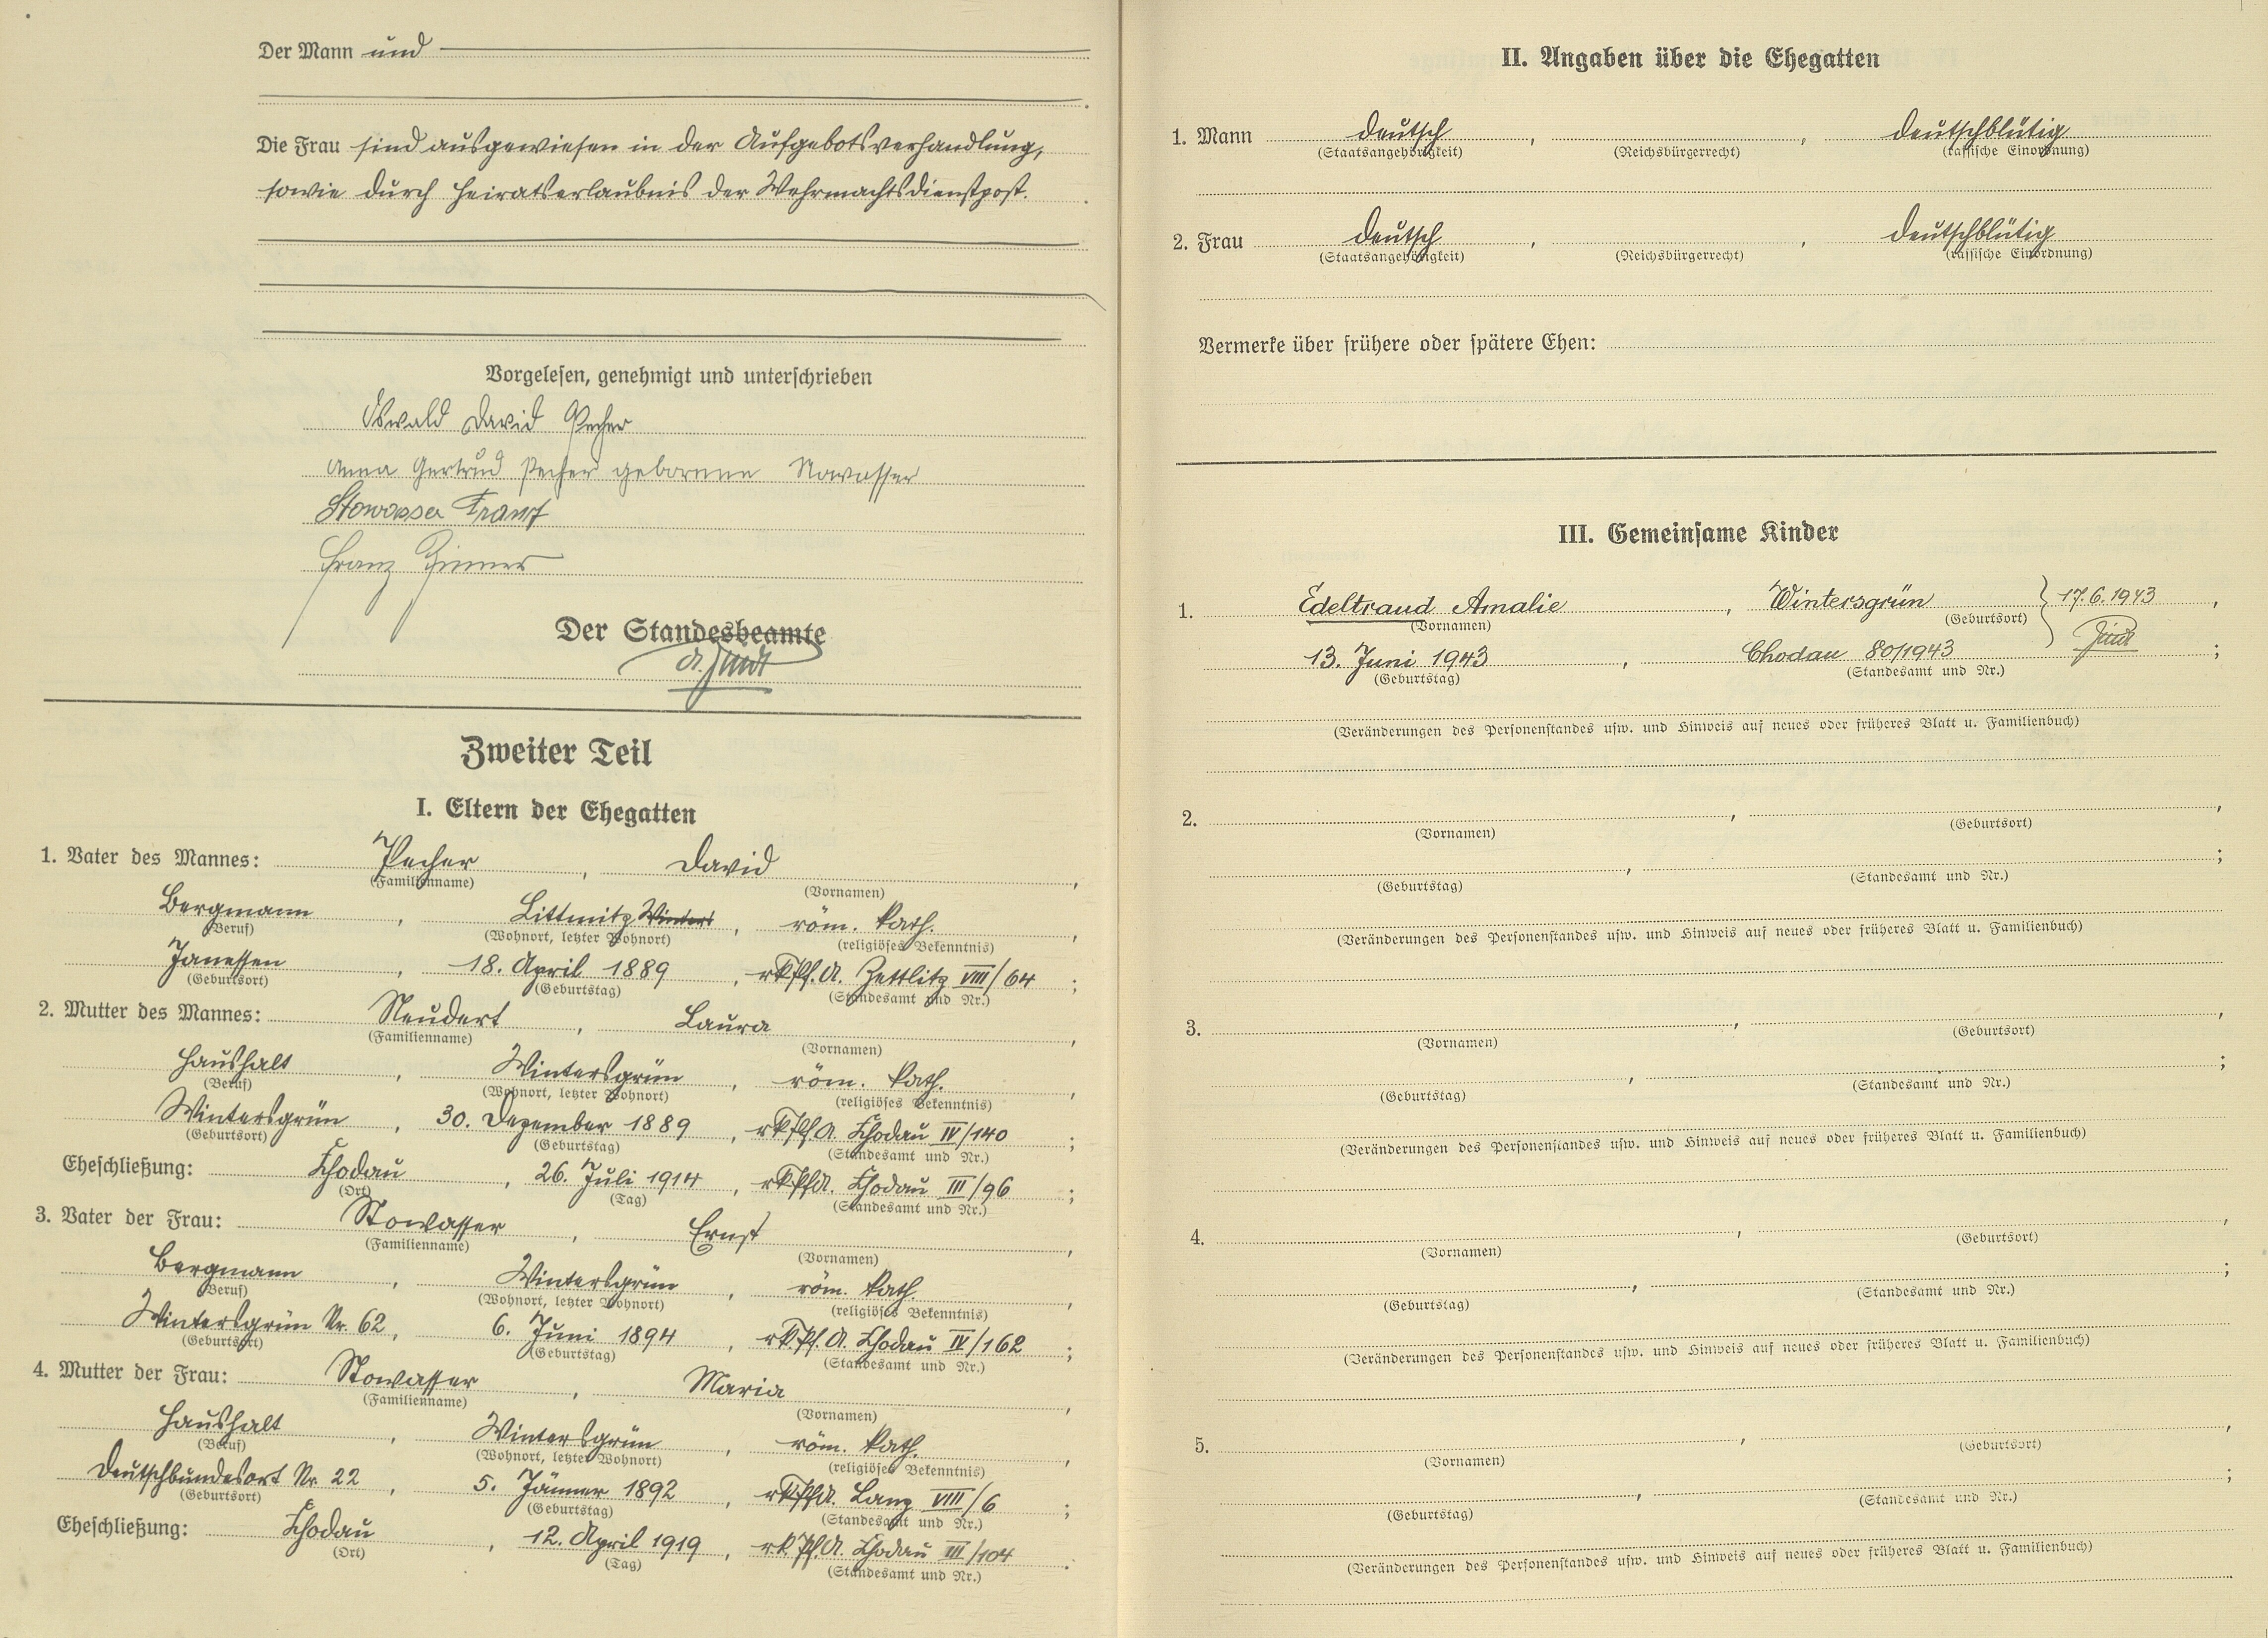 Der Mann und
Die Frau sind ausgewiesen in der Aufgebotsverhandlung,
sowie durch Heiratserlaubnis der Wehrmachtsdienstpost.
Vorgelesen, genehmigt und unterschrieben
Oswald David Pecher
Anna Gertrud Pecher geborene Stowasser
Stowasser Franz
Franz
Der Standesbeamte
Zweiter Teil
I. Eltern der Ehegatten
1. Vater des Mannes: Pecher, David,
(Familienname) (Vornamen)
Bergmann, Littmitz Winters, röm. kath.,
(Beruf) (Wohnort, letzter Wohnort) (religiöses Bekenntnis)
Janessen, 18. April 1889, rk Pf. A. Zettlitz VIII/64;
(Geburtsort) (Geburtstag) (Standesamt und Nr.)
2. Mutter des Mannes: Neudert, Laura,
(Familienname) (Vornamen)
Haushalt, Wintersgrün, röm. kath.,
(Beruf) (Wohnort, letzter Wohnort) (religiöses Bekenntnis)
Wintersgrün, 30. Dezember 1889, rk Pf A. Chodau IV/140;
(Geburtsort) (Geburtstag) (Standesamt und Nr.)
Eheschließung: Chodau, 26. Juli 1914, rk Pf A. Chodau III/96;
(Ort) (Tag) (Standesamt und Nr.)
3. Vater der Frau: Stowasser, Ernst,
(Familienname) (Vornamen)
Bergmann, Wintersgrün, röm. kath.,
(Beruf) (Wohnort, letzter Wohnort) (religiöses Bekenntnis)
Wintersgrün Nr. 62, 6. Juni 1894, rk Pf. A. Chodau IV/162;
(Geburtsort) (Geburtstag) (Standesamt und Nr.)
4. Mutter der Frau: Stowasser, Maria,
(Familienname) (Vornamen)
Haushalt, Wintersgrün, röm. kath.,
(Beruf) (Wohnort, letzter Wohnort) (religiöses Bekenntnis)
Deutschbundesort Nr. 22, 5. Jänner 1892, rk Pf A. Lanz VIII/6;
(Geburtsort) (Geburtstag) (Standesamt und Nr.)
Eheschließung: Chodau, 12. April 1919, r.k Pf. A. Chodau III/104.
(Ort) (Tag) (Standesamt und Nr.)
II. Angaben über die Ehegatten
1. Mann deutsch, , deutschblütig
(Staatsangehörigkeit) (Reichsbürgerrecht) (rassische Einordnung)
2. Frau deutsch, , deutschblütig
(Staatsangehörigkeit) (Reichsbürgerrecht) (rassische Einordnung)
Vermerke über frühere oder spätere Ehen:
III. Gemeinsame Kinder
1. Edeltraud Amalie, Wintersgrün } 17.6.1943,
(Vornamen) (Geburtsort)
13. Juni 1943, Chodau 80/1943;
(Geburtstag) (Standesamt und Nr.)
(Veränderungen des Personenstandes usw. und Hinweis auf neues oder früheres Blatt u. Familienbuch)
2. , ,
(Vornamen) (Geburtsort)
, ;
(Geburtstag) (Standesamt und Nr.)
(Veränderungen des Personenstandes usw. und Hinweis auf neues oder früheres Blatt u. Familienbuch)
3. , ,
(Vornamen) (Geburtsort)
, ;
(Geburtstag) (Standesamt und Nr.)
(Veränderungen des Personenstandes usw. und Hinweis auf neues oder früheres Blatt u. Familienbuch)
4. , ,
(Vornamen) (Geburtsort)
, ;
(Geburtstag) (Standesamt und Nr.)
(Veränderungen des Personenstandes usw. und Hinweis auf neues oder früheres Blatt u. Familienbuch)
5. , ,
(Vornamen) (Geburtsort)
, ;
(Geburtstag) (Standesamt und Nr.)
(Veränderungen des Personenstandes usw. und Hinweis auf neues oder früheres Blatt u. Familienbuch)